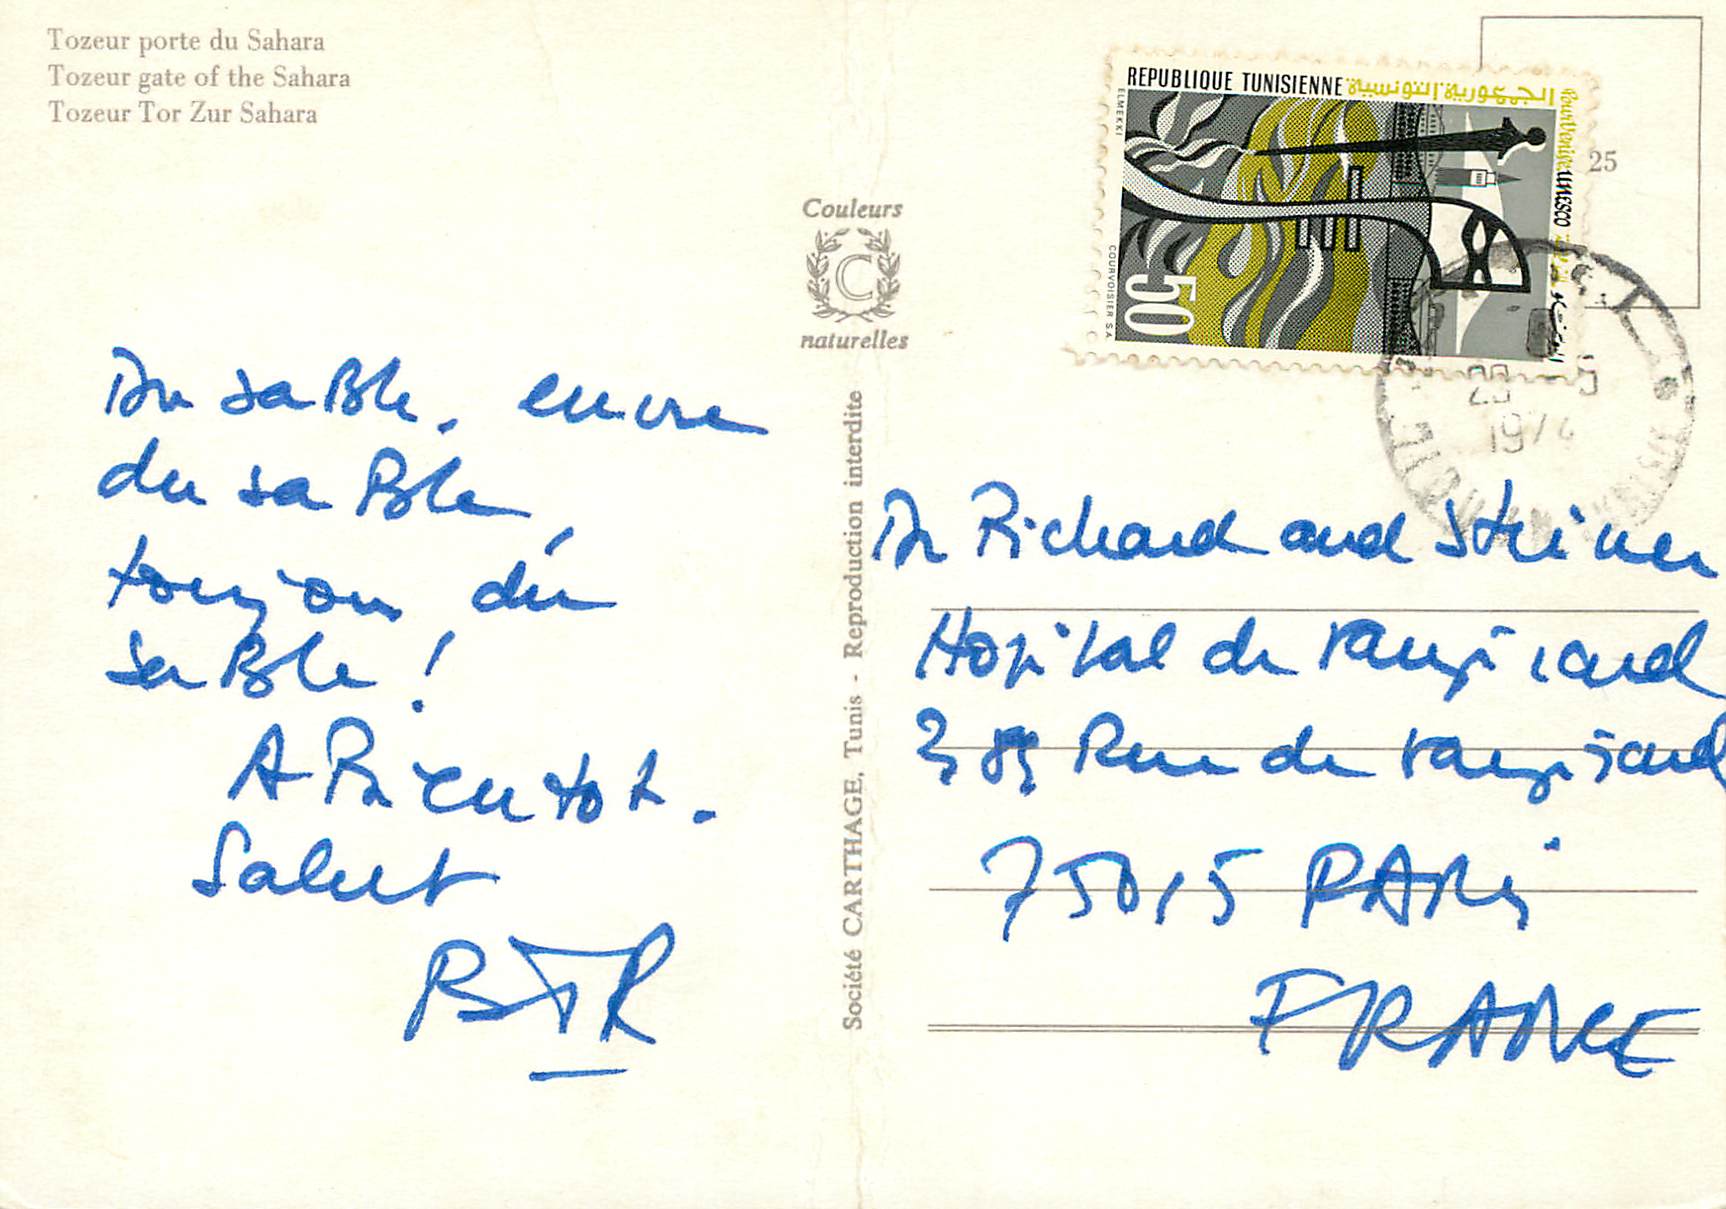 Tozeur porte du Sahara
Tozeur gate of the Sahara
Tozeur Tor Zur Sahara
REPUBLIQUE TUNISIENNE الجمهورية التونسية
Pour Venise UNESCO
ELMEKKI
COURVOISIER S.A
50
25
1974
Couleurs
C
naturelles
Société CARTHAGE, Tunis - Reproduction interdite
Du saBle, encore
du saBle,
toujours du
saBle!
A Bientot.
Salut
Dr Richard and Steiner
Hopital de Vaugirard
389 Rue de Vaugirard
75015 PARis
FRANCE